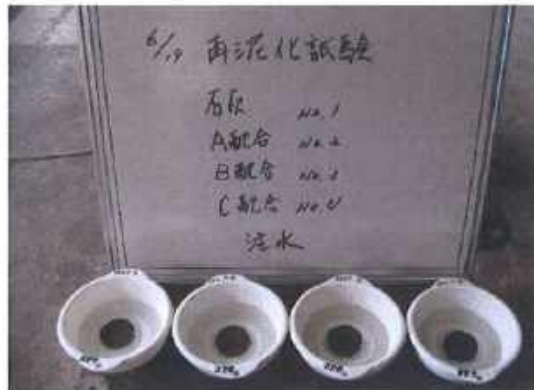 6/19 再泥化試験
石灰 No.1
A配合 No.2
B配合 No.3
C配合 No.4
注水